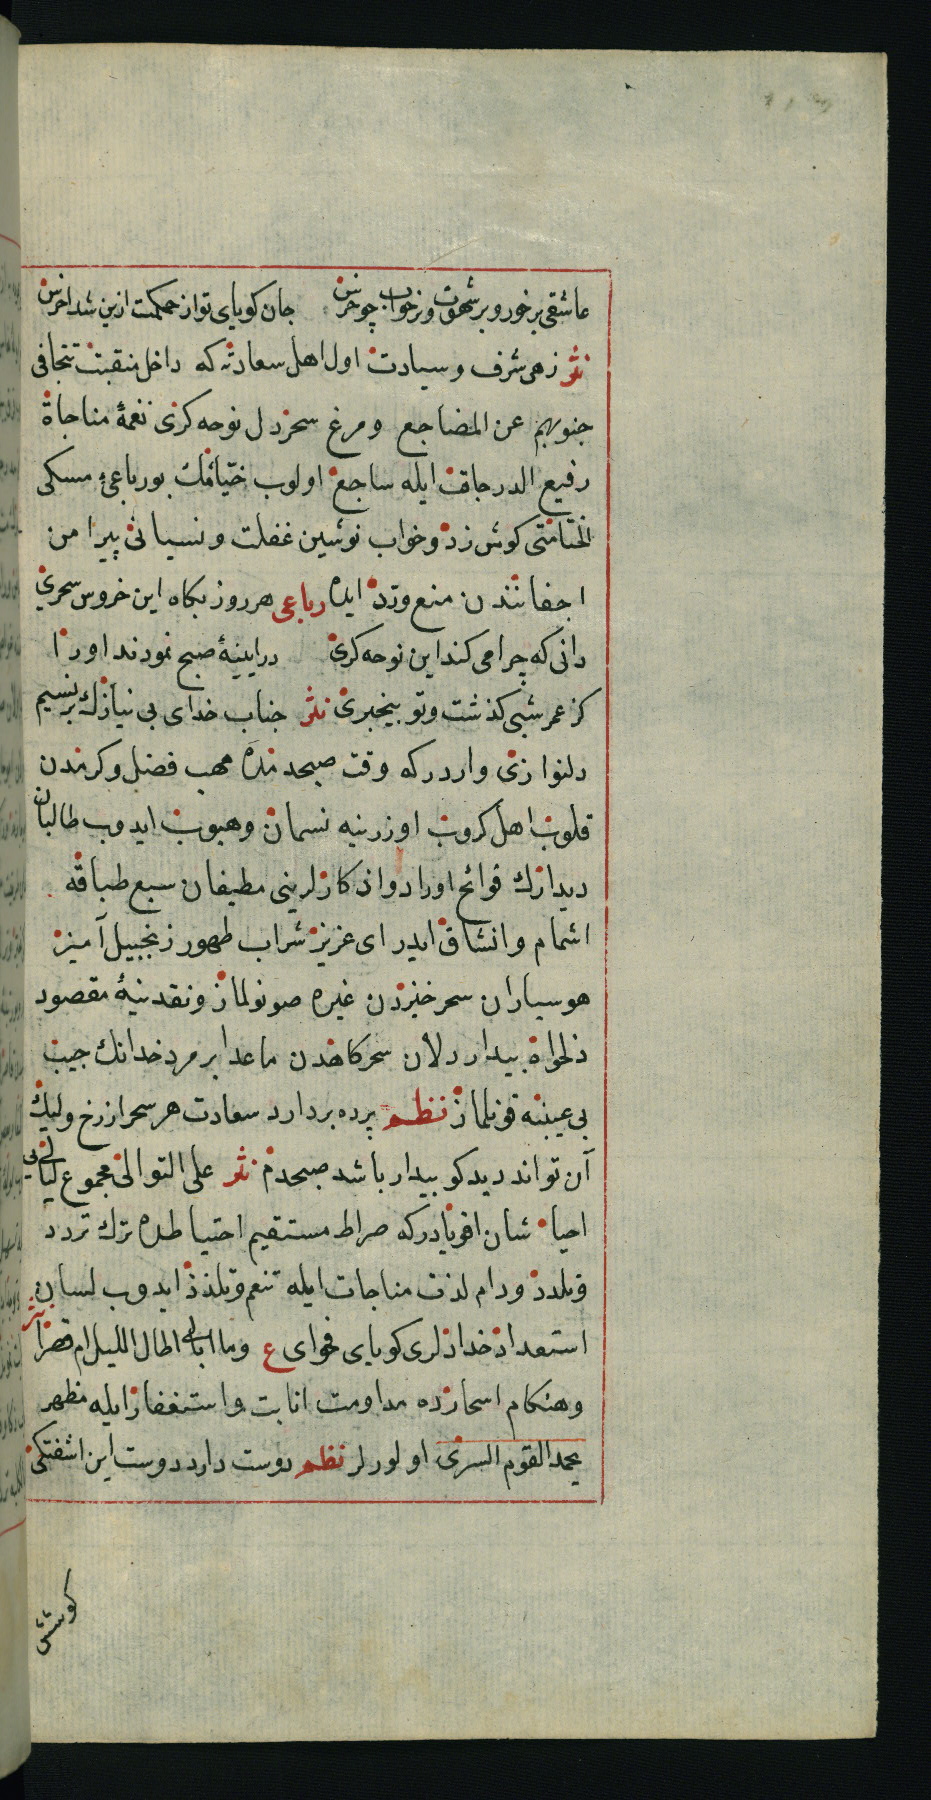 عاشقی بر خور و بر شهوت و بر خواب چو خرس جان کویای تو از حکمت ازین شد اخرس
نثر زهی شرف و سیادت اول اهل سعادته که داخل منقبت تتجافی
جنوبهم عن المضاجع و مرغ سحر دل نوحه کری نغمهٔ مناجاة
رفیع الدرجات ایله ساجع اولوب ختیامك بو رباعئ مسکی
الختامتی کوش زد و خواب نوشین غفلت و نسیانی پیرامن
اجفانندن منع و رد ایده رباعی هر روز بکاه این خروس سحری
دانی که چرا می کند این نوحه کری در ایینهٔ صبح نمودند او را
کز عمر شبی کذشت و تو بیخبری نثر جناب خدای بی نیازك بر نسیم
دلنوازی واردر که وقت صبحدمده مهب فضل و کرمدن
قلوب اهل کروب اوزرینه نسمان و هبوب ایدوب طالبان
دیدارك فوائح اوراد و اذکارلرینی مطیفان سبع طباقه
اشمام و انشاق ایدر ای عزیز شراب طهور زنجبیل آمیز
هوسیاران سحر خیزدن غیره صونولماز و نقدینهٔ مقصود
دلخواه بیدار دلان سحرکاهدن ماعدا بر مرد خدانك جیب
بی عیبنه قونلماز نظم پرده بردارد سعادت هر سحر از رخ ولیك
آن تواند دید کو بیدار باشد صبحدم نثر علی التوالی مجموع لیالی یی
احیا شان اقویادر که صراط مستقیم احتیاطده ترك تردد
و تلدد و دام لذت مناجات ایله تنعم و تلذذ ایدوب لسان
استعداد خدادلری کویای فحوای ع وما ابالی اطال اللیل ام قصرا نثر
و هنکام اسحارده مداومت انابت و استغفار ایله مظهر
یحمد القوم السری اولورلر نظم دوست دارد دوست این اشفتکی
کوشش